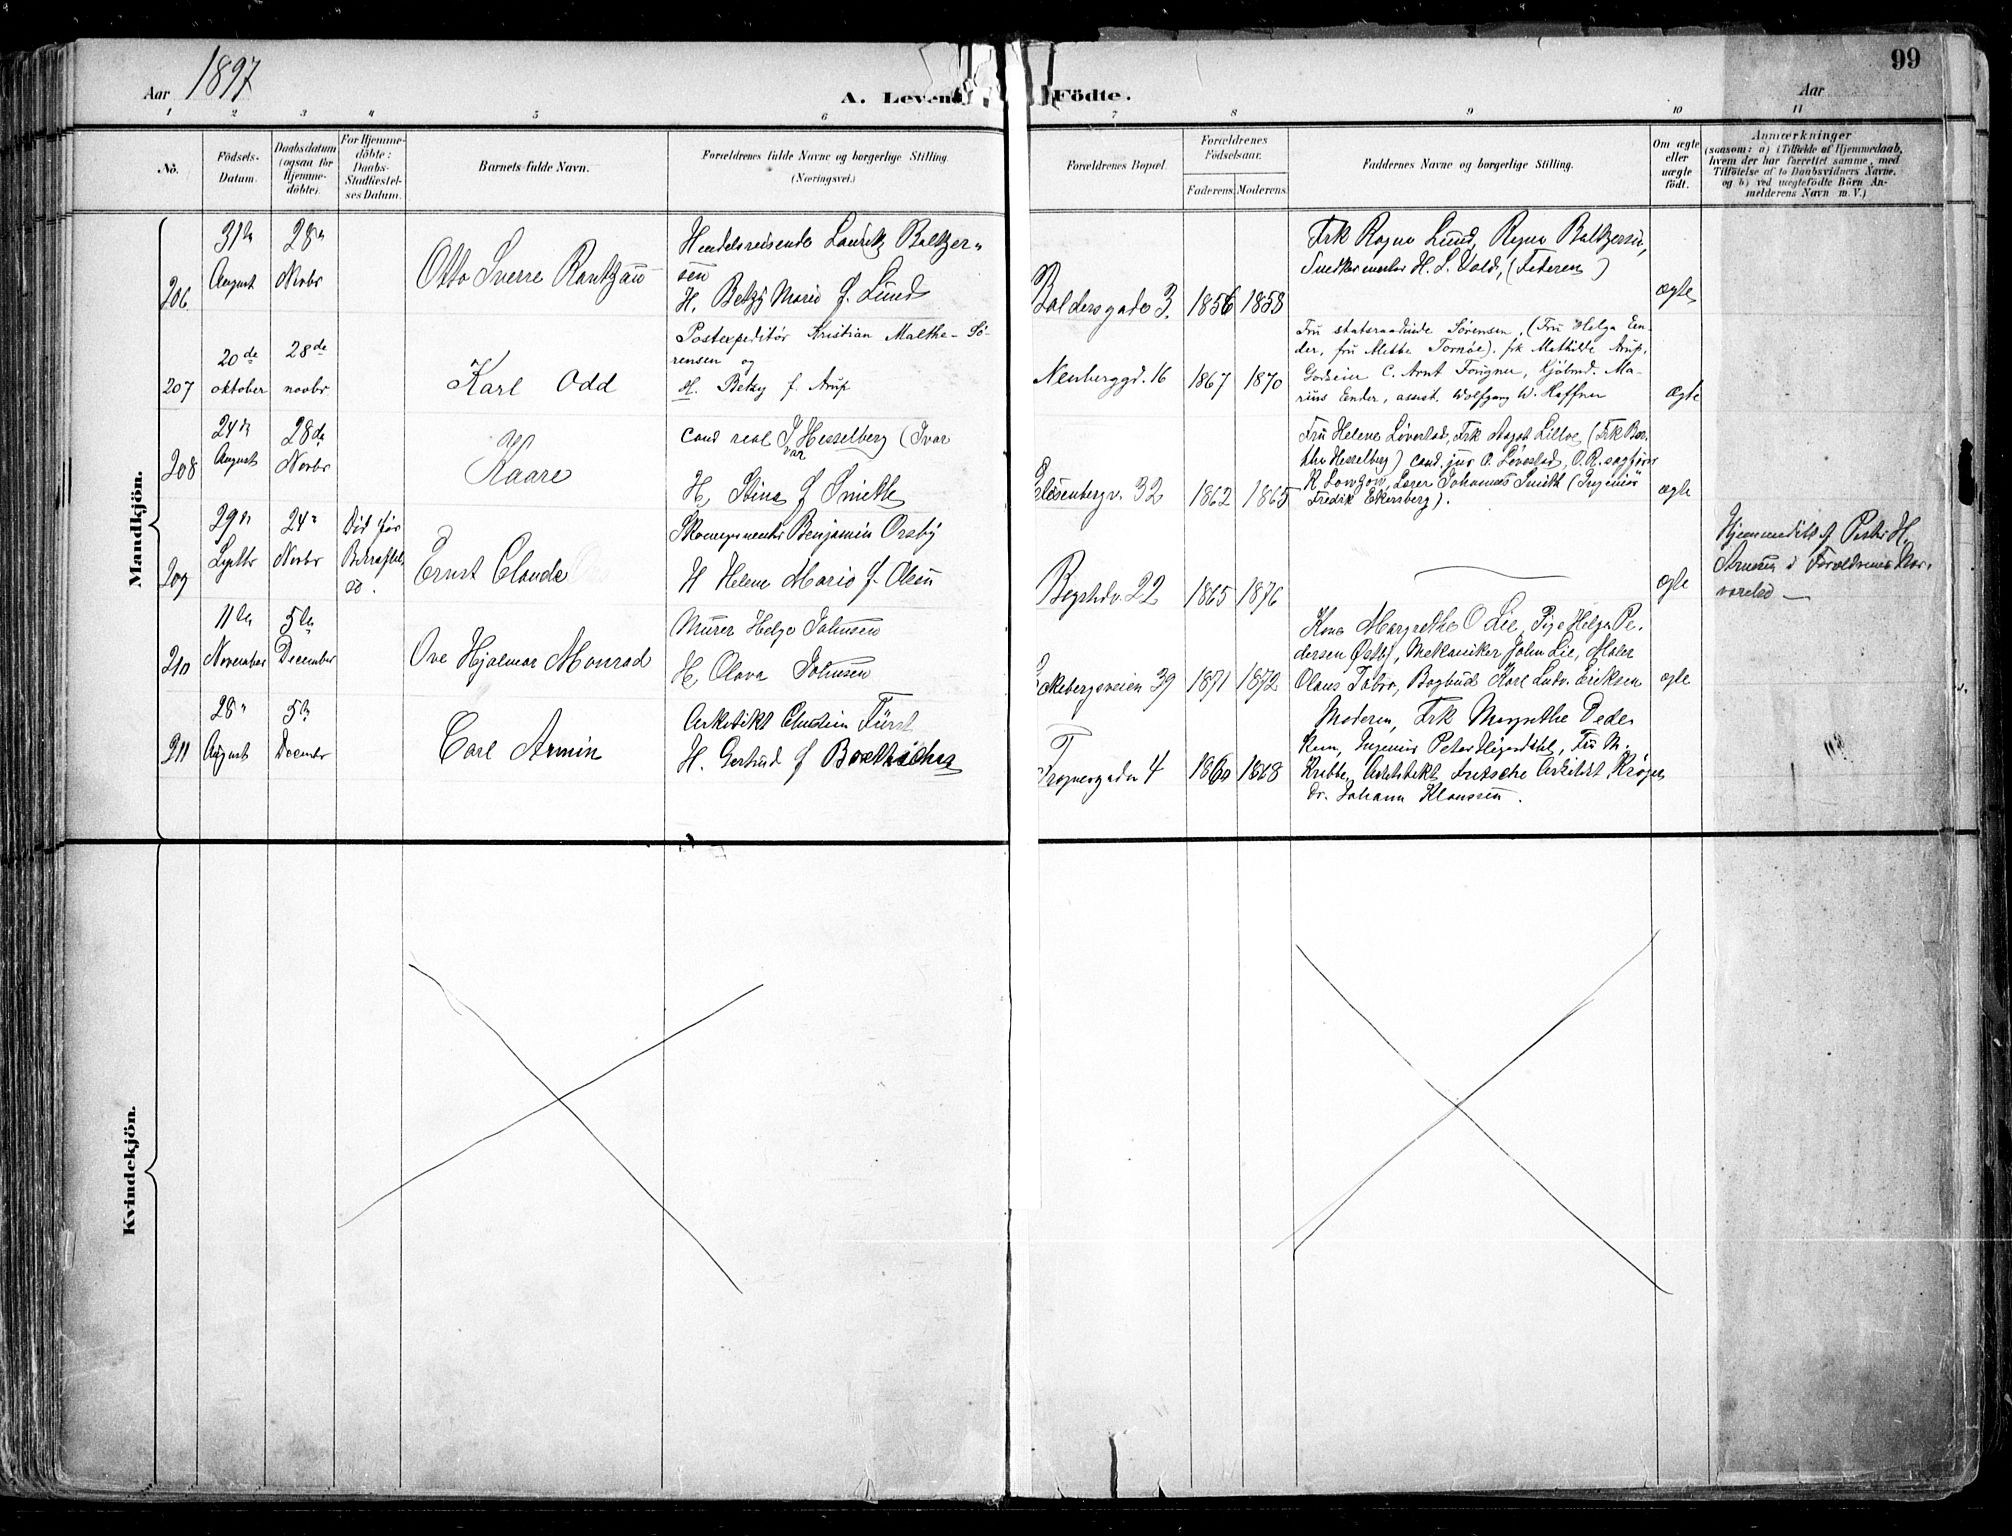 1897
99
Aar
A. Levende
Födte.
Aar
1 2 3 4 5 6 7 8 9 10 11
No.
Födsels-Datum.
Daabsdatum (ogsaa for Hjemme-döbte).
For Hjemme-döbte: Daabs-Stadfæstel-ses Datum.
Barnets fulde Navn.
Forældrenes fulde Navne og borgerlige Stilling.
(Næringsvei.)
Forældrenes Bopæl.
Forældrenes Födselsaar.
Faderens. Moderens.
Faddernes Navne og borgerlige Stilling.
Om ægte eller uægte födt.
Anmærkninger
(saasom: a) i Tilfælde af Hjemmedaab,
hvem der har forrettet samme, med
Tilföielse af to Daabsvidners Navne.
og b) ved uægtefödte Börn An-
melderens Navn m. V.)
Mandkjön.
206
31te August
28de Novbr
Otto Sverre Rantzau
Handelsreisende Lauritz Baltzer-
sen
H. Betzy Marie f. Lund
Baldersgade 3.
1856 1858
Frk Ragna Lund, Ragna Baltzersen,
Snedkermester H. L. Vold, (Faderen)
ægte
207
20de oktober
28de novbr
Karl Odd
Postexpeditør Kristian Malthe-Sø-
rensen og
H. Betzy f. Arup
Neuberggd. 16
1867 1870
Fru statsraadinde Sørensen, (Fru Helga Een-
der, fru Mette Tornøe). frk Mathilde Arup,
Godseier C. Arnt Kjöbmd. Ma-
rius Eender, assist. Wolfgang W. Haffner
ægte
208
24de August
28de Novbr
Kaare
cand real I Hesselberg (Ivar
var
H, Stina f Smith
Eilesenbergv. 32
1862 1865
Fru Helene Løvestad, Frk Aagot Lilloe, (Frk Ber-
tha Hesselberg) cand. jur O. Løvestad, O.R.sagfører
R Lowzow, Læser Johannes Smith (Ingeniør
Fredrik Ekersberg).
ægte
209
29de Septbr
24de Novbr
Död før Bekræftel
se.
Ernst Claude
Skomagermester Benjamin Orsby
H Helene Marie f. Olsen
Bygdøv. 22
1865 1876
ægte
Hjemmedöbt af Peder H.
i Forældrenes Nær-
værelse —
210
11te November
5te December
Ove Hjalmar Monrad
Murer Helge Johnsen
H, Olava Johnsen
Ekebergsveien 39
1871 1872
Kone Margrethe O Lie, Pige Helga Pe-
dersen Østby, Mekaniker John Lie, Maler
Olaus Bogbind Karl Ludv. Eriksen
ægte
211
28de August
5te December
Carl Armin
Arkitekt Christian Fürst
H. Gertrud f
Frognergaden 4
1860 1868
Moderen, Frk Margrethe Dede
kam, Ingeniör Peter Fru M.
Krabbe, Arkitekt Fritsche Arkitekt Krøger
Dr. Johann Klaussen.
Kvindekjön.